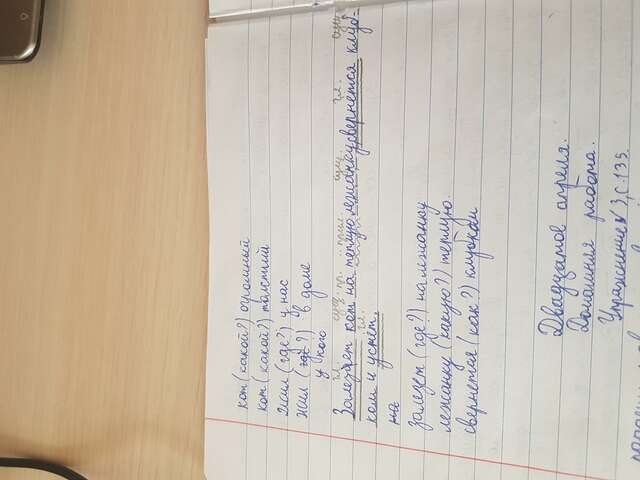 кот (какой?) огромный
кот (какой?) толстый
жил (где?) у нас
жил (где?) в доме
у кого
гл. сущ. пр. прил. сущ. гл. сущ.
Залезает кот на теплую лежанку, свернется клуб-
гл.
ком и уснет.
на
залезет (где?) на лежанку
лежанку (какую?) теплую.
свернется (как?) клубком
Двадцатое апреля.
Домашняя работа.
Упражнение 3, с. 135